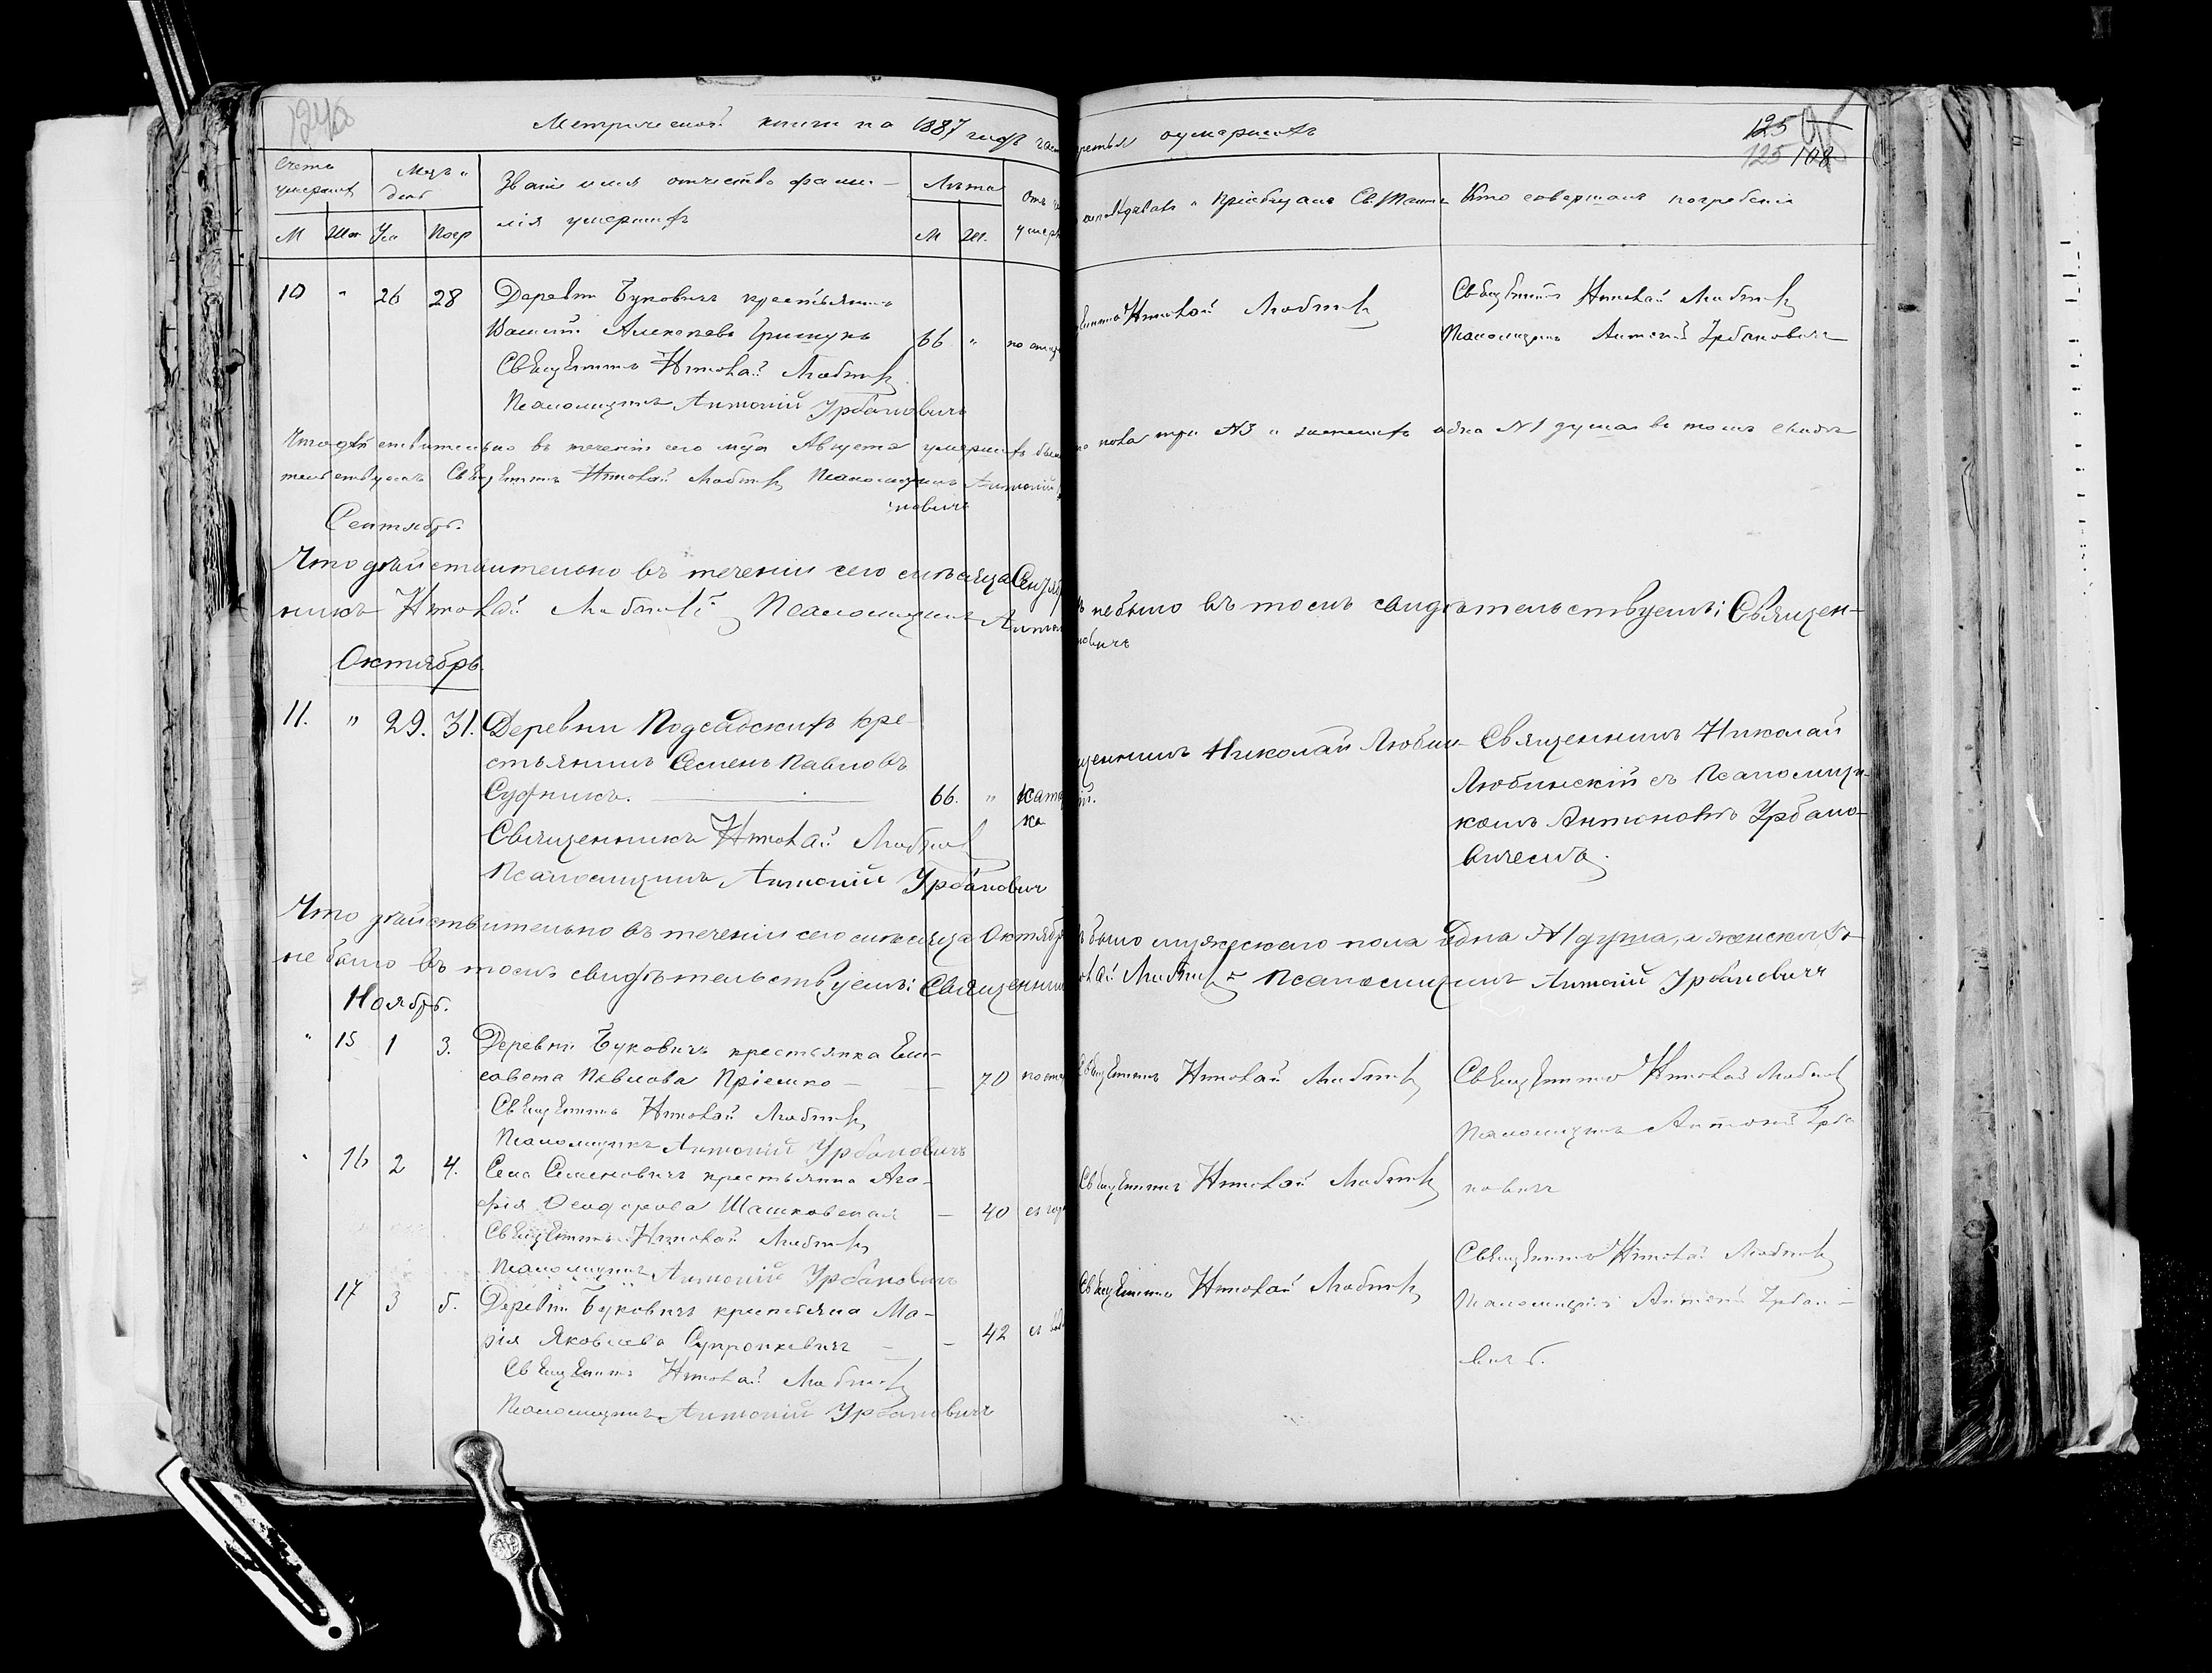 Метрической книги на 1887 годъ час
третья о умершихъ
125
125 108
Счетъ умершихъ
Мѣс. и день
Званіе имя отчество фами-
лія умершихъ
Лѣта
М Жен Ум Погр
М Ж.
Отъ чего умер
исповѣдывалъ и пріобщалъ Св. Таинъ
Кто совершалъ погребеніе
10 " 26 28 Деревни Буковичъ крестьянинъ
Грищукъ 66 "
Священникъ Николай Любинскій
Псаломщикъ Антоній Урбановичъ
Священникъ Николай Любинскій
Священникъ Николай Любинскій
Псаломщикъ Антоній Урбановичъ
Что дѣйствительно въ теченіи сего мѣсяца Августа умершихъ было
пола три №3 и женскихъ одна №1 душа въ томъ свидѣ
тельствуемъ Священникъ Николай Любинскій Псаломщикъ Антоній
новичъ
Сентябрь.
Что дѣйствительно въ теченіи сего мѣсяца Сентяб
не было въ томъ свидѣтельствуемъ: Священ-
никъ Николай Любинскій Псаломщикъ Антон
новичъ
Октябрь.
11. " 29. 31. Деревни Подсадскихъ кре-
стьянинъ Семенъ Павловъ
Судникъ. 66. "
Священникъ Николай Любинскій
Псаломщикъ Антоній Урбановичъ
щенникъ Николай Любин-
ій.
Священникъ Николай
Любинскій съ Псаломщи-
комъ Антоніемъ Урбано-
вичемъ.
Что дѣйствительно въ теченіи сего мѣсяца Октябр
было мужескаго пола одна №1 душа, а женскихъ
не было въ томъ свидѣтельствуемъ: Священник
лай Любинскій Псаломщикъ Антоній Урбановичъ
Ноябрь.
" 15 1 3. Деревни Буковичъ крестьянка Ели-
савета Павлова Пріемко — 70
Священникъ Николай Любинскій
Псаломщикъ Антоній Урбановичъ
Священникъ Николай Любинскій
Священникъ Николай Любинскій
Псаломщикъ Антоній Урба
новичъ
" 16 2 4. Села Семеновичъ крестьянка Ага-
фія Ѳеодорова Шашковская — 40
Священникъ Николай Любинскій
Псаломщикъ Антоній Урбановичъ
Священникъ Николай Любинскій
Священникъ Николай Любинскій
Псаломщикъ Антоній Урбано-
вичъ.
17 3 5. Деревни Буковичъ крестьянка Ма-
рія Яковлева Супронкевичъ — 42
Священникъ Николай Любинскій
Псаломщикъ Антоній Урбановичъ
Священникъ Николай Любинскій